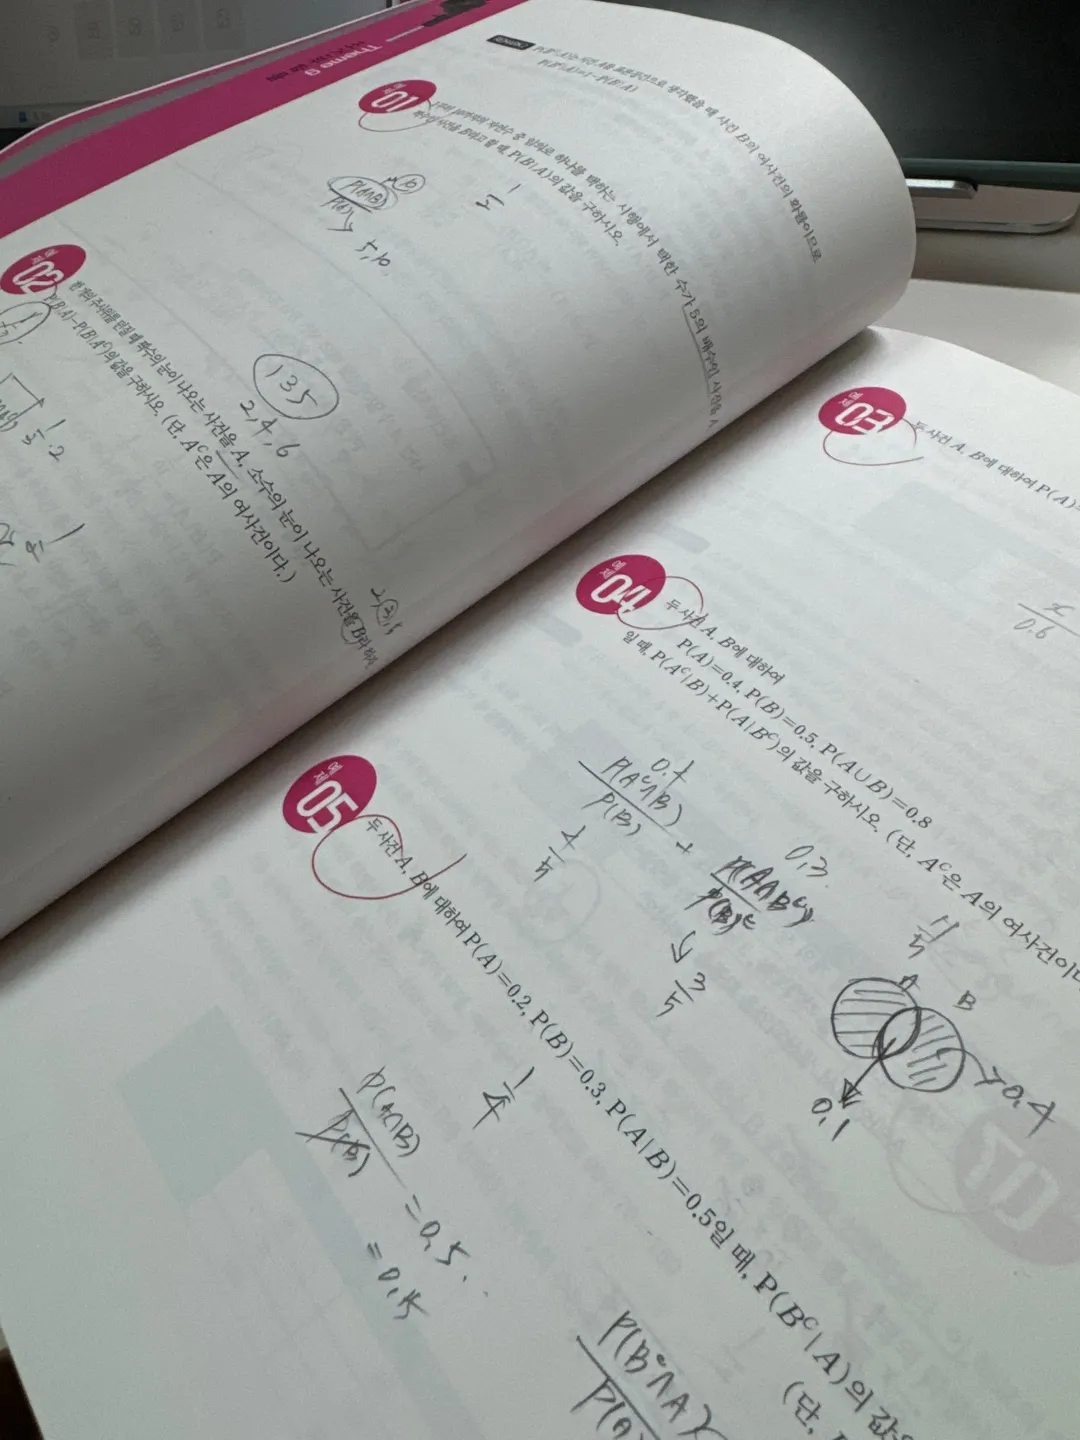 Theme 9
P(Bᶜ|A)는 사건 A를 표본공간으로 생각했을 때 사건 B의 여사건의 확률이므로
P(Bᶜ|A)=1-P(B|A)
예제 01
1부터 10까지의 자연수 중 임의로 하나를 택하는 시행에서 택한 수가 5의 배수인 사건을 A
사건을 B라고 할 때, P(B|A)의 값을 구하시오.
P(A∩B)
P(A)
10
5, 10
1/2
예제 02
한 개의 주사위를 던질 때 짝수의 눈이 나오는 사건을 A, 소수의 눈이 나오는 사건을 B라
P(B|A)-P(B|Aᶜ)의 값을 구하시오. (단, Aᶜ은 A의 여사건이다.)
1 3 5
2, 4, 6
2, 3, 5
예제 03
두 사건 A, B에 대하여 P(A)=
x/0.6
예제 04
두 사건 A, B에 대하여
P(A)=0.4, P(B)=0.5, P(A∪B)=0.8
일 때, P(Aᶜ|B)+P(A|Bᶜ)의 값을 구하시오. (단, Aᶜ은 A의 여사건이다
0.4
P(Aᶜ∩B)
P(B)
+
0.3
P(A∩Bᶜ)
P(B)ᶜ
4/5
3/5
A
B
0.4
0.1
예제 05
두 사건 A, B에 대하여 P(A)=0.2, P(B)=0.3, P(A|B)=0.5일 때, P(Bᶜ|A)의 값을
(단,
1/4
P(A∩B)
P(B)
=0.5
=0.15
P(Bᶜ∩A)
P(A)